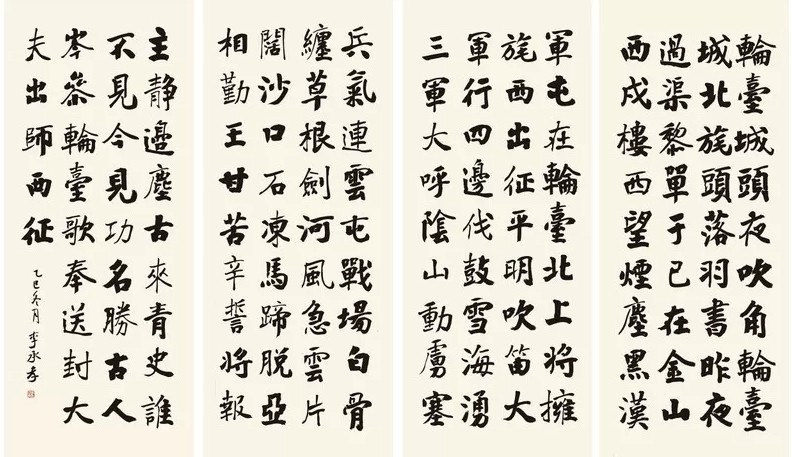 輪臺城頭夜吹角輪臺
城北旄頭落羽書昨夜
過渠黎單于已在金山
西戍樓西望煙塵黑漢
軍屯在輪臺北上將擁
旄西出征平明吹笛大
軍行四邊伐鼓雪海湧
三軍大呼陰山動虜塞
兵氣連雲屯戰場白骨
纏草根劍河風急雲片
闊沙口石凍馬蹄脫亞
相勤王甘苦辛誓將報
主靜邊塵古來青史誰
不見今見功名勝古人
岑參輪臺歌奉送封大
夫出師西征
乙巳冬月 李承孝